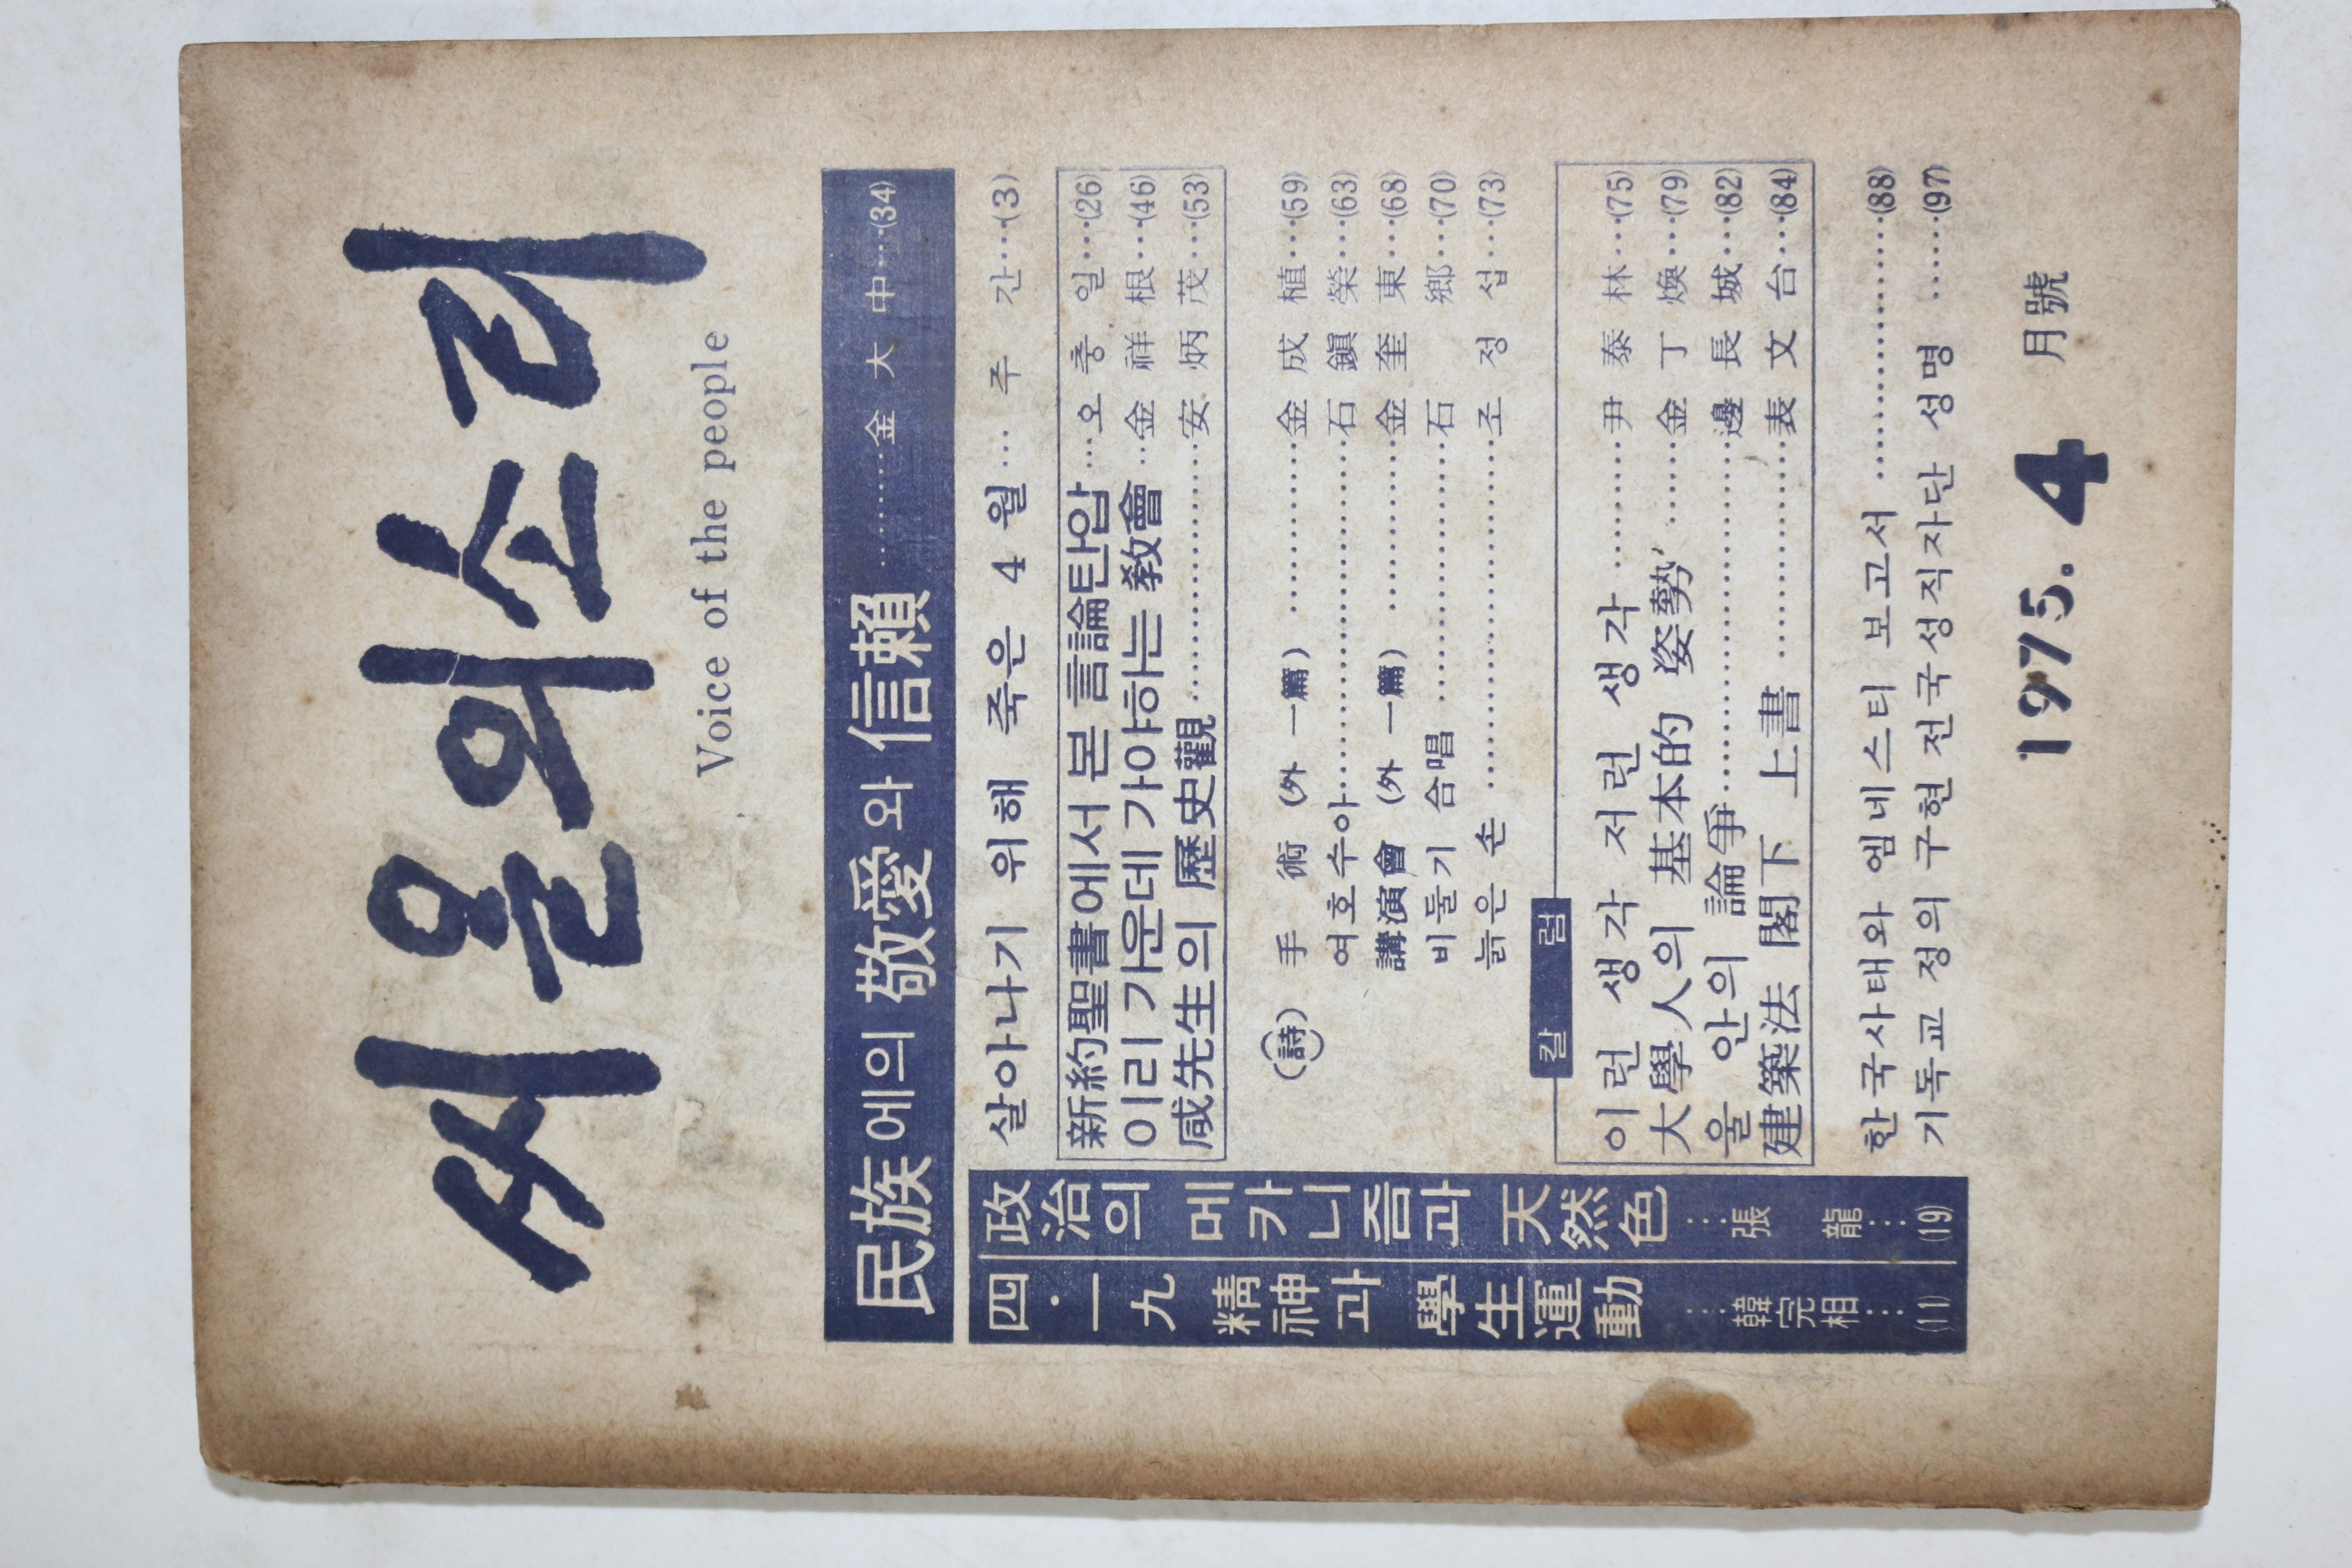 씨올의소리
Voice of the people
民族에의 敬愛와 信賴 ………金大中…(34)
四·一九 精神과 學生運動 …韓完相…(11)
政治의 메카니즘과 天然色 …張龍…(19)
살아나기 위해 죽은 4월 … 주간…(3)
新約聖書에서 본 言論탄압 …오충일…(26)
이리 가운데 가야하는 敎會 …金祥根…(46)
咸先生의 歷史觀 ………安炳茂…(53)
(詩) 手術 (外 一篇) ………金成植…(59)
여호수아………石鎭榮…(63)
講演會 (外 一篇) ………金奎東…(68)
비둘기 合唱 ………石鄕…(70)
늙은 손 ………조정섭…(73)
칼럼
이런 생각 저런 생각 ………尹泰林…(75)
大學人의 基本的 姿勢 ………金丁煥…(79)
울 안의 論爭………邊長城…(82)
建築法 閣下 上書 ………表文台…(84)
한국사태와 엠네스티 보고서 ………(88)
기독교 정의 구현 전국성직자단 성명 ……(97)
1975. 4 月號